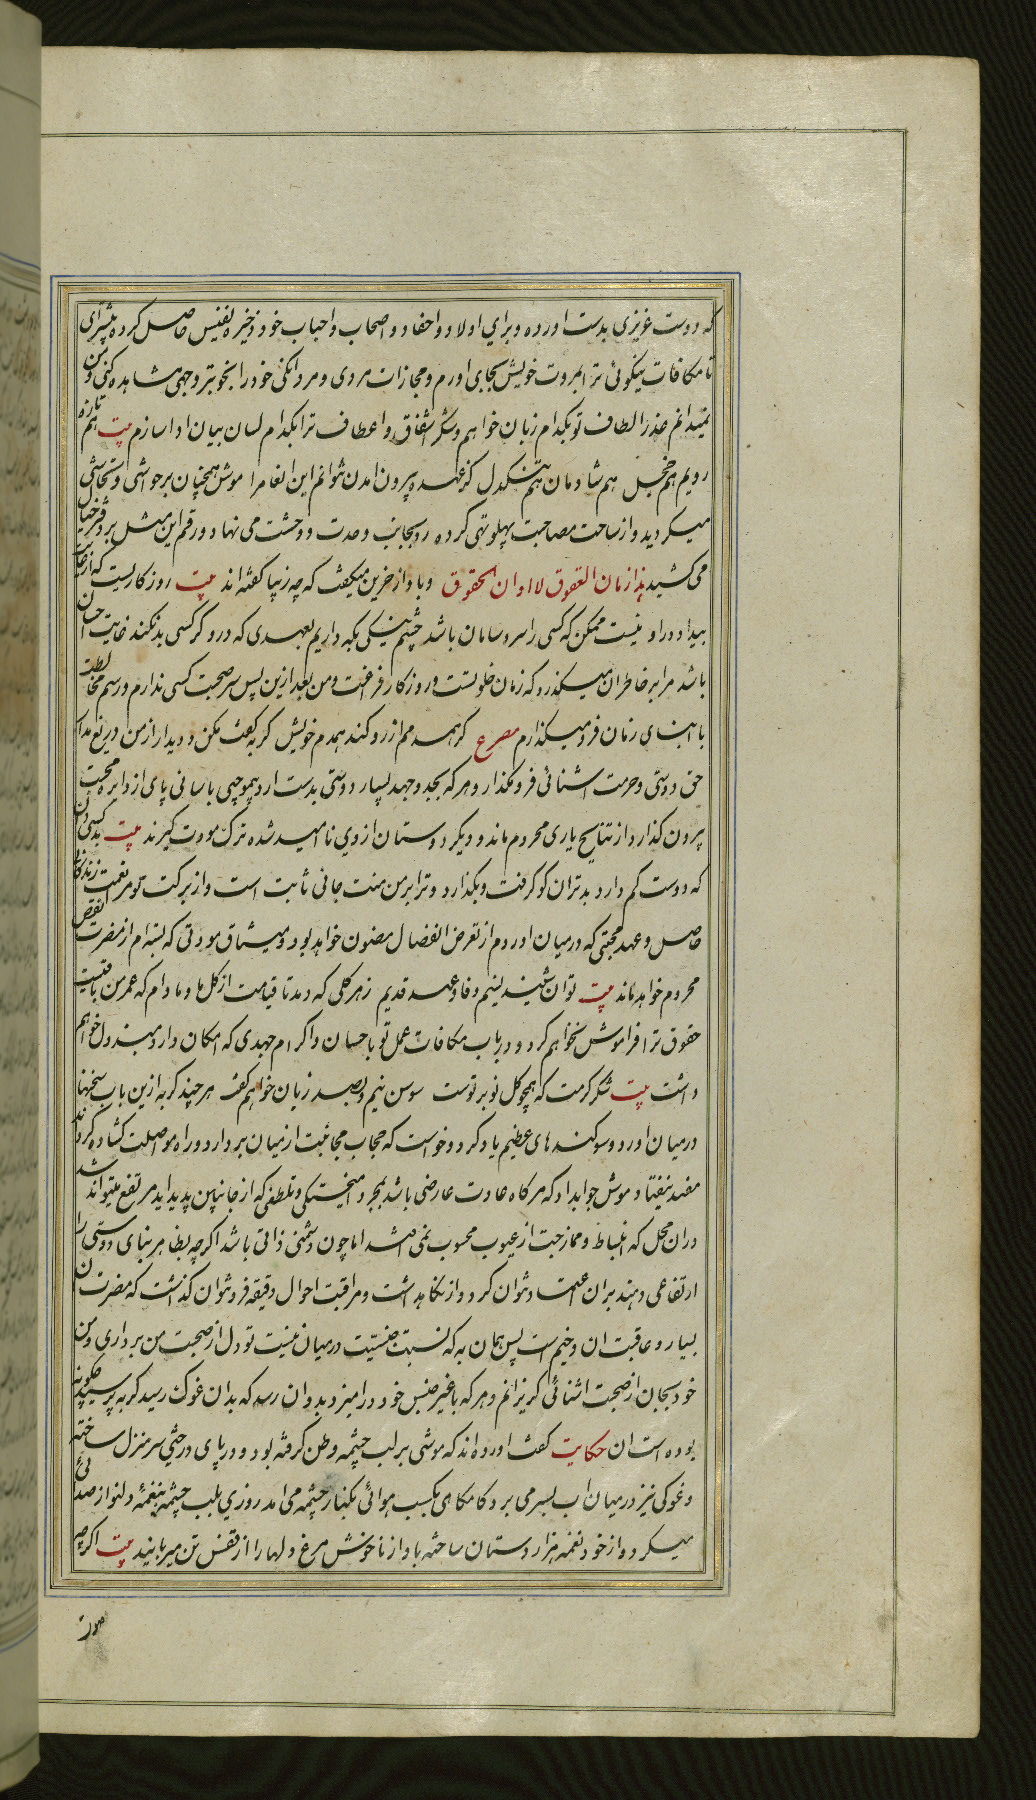 که دوست عزیزی بدست اورده و برای اولاد و احفاد و اصحاب و احباب خود ذخیره نفیس حاصل کرده پیشتر آی
تا مکافات نیکوئی ترا بمروت خویش بجای اورم و مجازات مردی و مردانکی خود را بخوبتر وجهی مشاهده کنی و من
نمیدانم عذر الطاف تو بکدام زبان خواهم و شکر اشفاق و اعطاف ترا بکدام لسان بیان ادا سازم بیت هم تازه
رویم هم خجل هم شادمان هم تنکدل کز عهده بیرون امدن نتوانم این انعام را موش همچنان برحواشی وتحاشی
میکردید و از ساحت مصاحبت پهلو تهی کرده رو بجانب وحدت و وحشت می نهاد و رقم این مثل بر دفتر خیال
می کشید هذا زمان العقوق لا اوان الحقوق و باواز حزین میکفت که چه زیبا گفته اند بیت روزکاریست که از غایت
بیداد در او نیست ممکن که کسی را سر و سامان باشد چشم نیکی بکه داریم بعهدی که درو کر کسی بد نکند غایت احسان
باشد مرا بر خاطر ان میکذرد که زمان خلوتست و روزکار فراغت و من بعد ازین پس سر صحبت کسی ندارم و رسم مخالطت
با ابنای زمان فرو میکذارم مصرع کر همدمم از رو کند همدم خویش کربه کفت مکن و دیدار از من دریغ مدار
حق دوستی و حرمت اشنائی فرو مکذار و هر که بجد و جهد بسیار دوستی بدست ارد و بموجبی باسانی پای از دایره محبت
بیرون کذارد از نتایج یاری محروم ماند و دیکر دوستان از وی نا امید شده ترک مودت کیرند بیت بد کسی دان
که دوست کم دارد بدتر ان کو کرفت و بکذارد و ترا بر من منت جانی ثابت است و از برکت تو مر نعمت زندکانی
حاصل و عهد محبتی که درمیان اوردم از تعرض انفصال مصون خواهد بود و میثاق مودتی که بسته ام از مضرت نقض
محروم خواهد ماند بیت توان شنید نسیم وفا و عهد قدیم زهر کلی که دمد تا قیامت از کل ما و مادام که عمر من باقیست
حقوق ترا فراموش نخواهم کرد و در باب مکافات عمل تو باحسان و اکرام جهدی که امکان دارد مبذول خواهم
داشت بیت شکر کرمت که همچو کل نو بر توست سوسن نیم و بصد زبان خواهم کفت هر چند کربه ازین باب سخنها
درمیان اورد و سوکندهای عظیم یاد کرد و خواست که حجاب مجانبت از میان بردارد و راه مواصلت کشاده کرداند
مفید نیفتاد موش جواب داد که هر کاه عداوت عارضی باشد بمجرد امیختکی و تلطفی که از جانبین پدید اید مرتفع میتواند شد
دران محل که انبساط و ممازحت از عیوب محسوب نمی افتد اما چون دشمنی ذاتی باشد اکرچه بظاهر بنای دوستی را
ارتفاعی دهند بران اعتماد نتوان کرد و از نکاهداشت و مراقبت احوال دقیقه فرو نتوان کذاشت که مضرت ان
بسیار و عاقبت ان وخیم است پس همان به که نسبت جنسیت درمیان نیست تو دل از صحبت من برداری و من
خود بجان از صحبت اشنائی کریزانم و هر که با غیر جنس خود در امیزد بدو ان رسد که بدان غوک رسید کربه پرسید چکونه
بوده است ان حکایت کفت اورده اند که موشی بر لب چشمه وطن کرفته بود و در پای درختی سر منزل ساخته
و غوکی نیز درمیان اب بسر می برد و کاه کاهی بکسب هوائی بکنار چشمه می امد روزی بلب چشمه بنغمه دلنواز صدائی
میکرد و از خود نغمه هزار دستان ساخته باواز ناخوش مرغ دلها را از قفس تن میرهانید بیت اکرچه
صورت